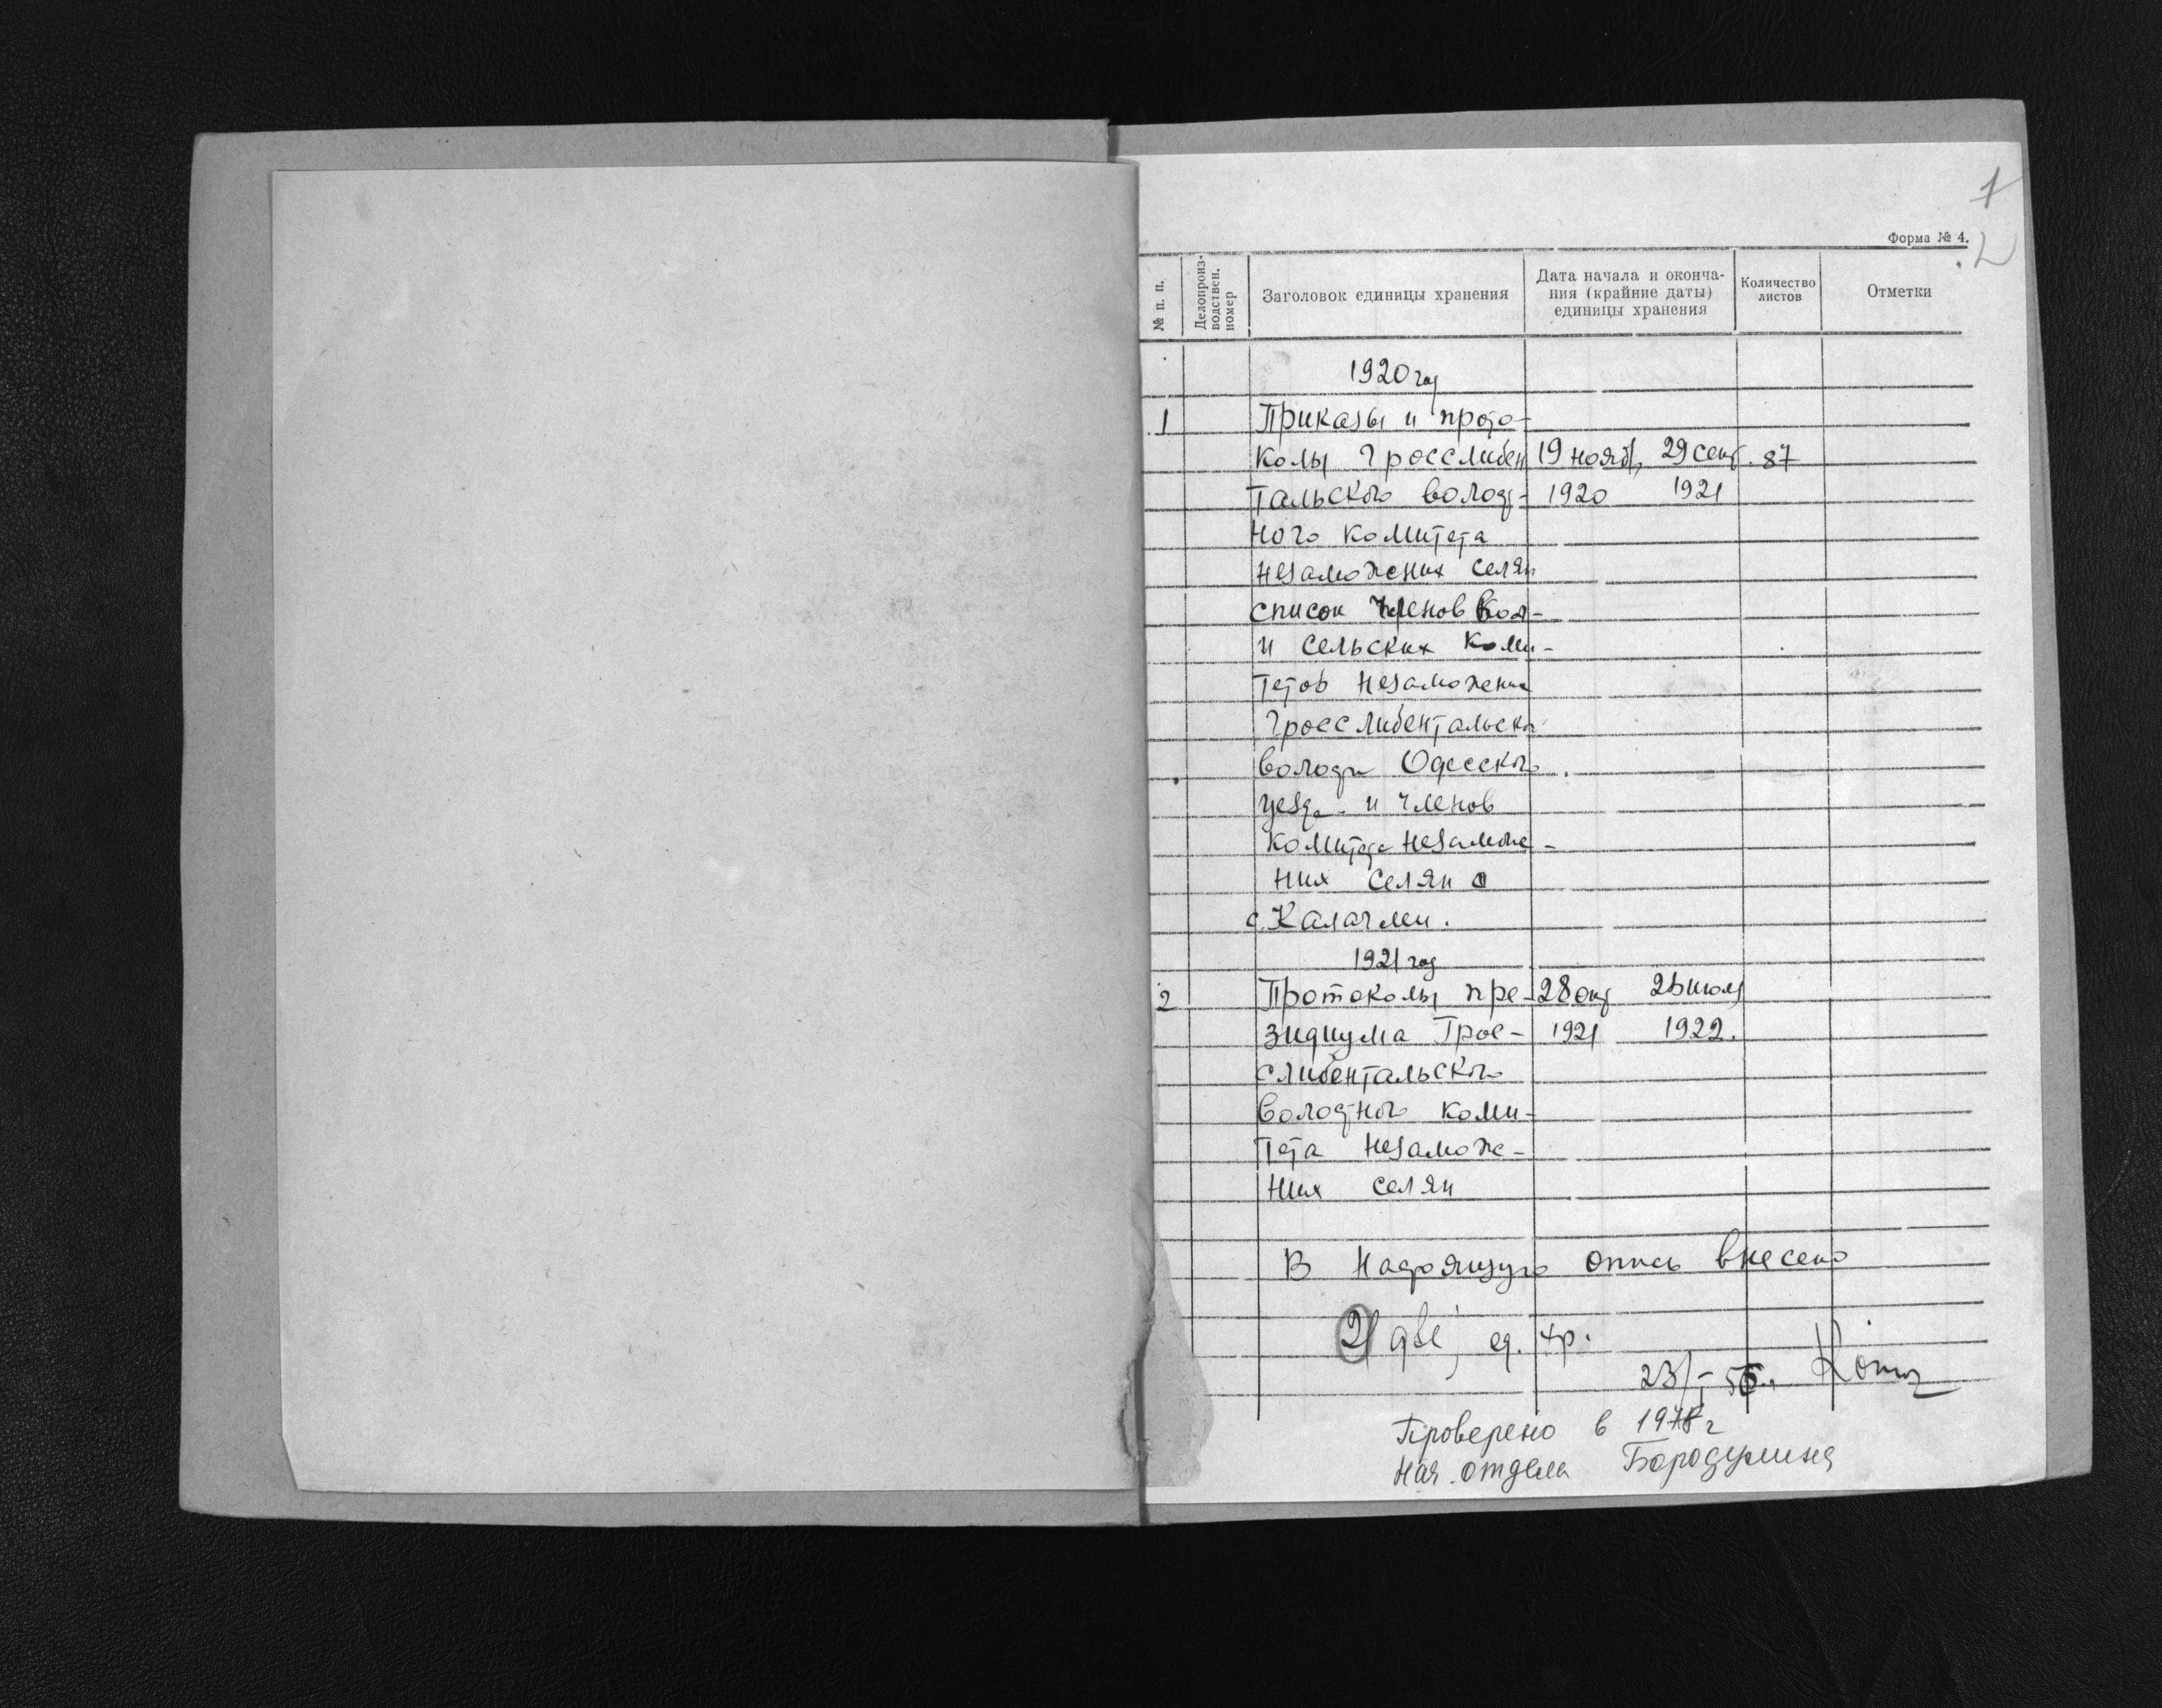 1
Форма № 4.
2
№ п. п.
Делопроиз-
водствен.
номер
Заголовок единицы хранения
Дата начала и оконча-
ния (крайние даты)
единицы хранения
Количество
листов
Отметки
1920 год
1 Приказы и прото-
колы Гросслибен 19 нояб. 29 сент. 87
тальского волост- 1920 1921
ного комитета
незаможних селян
список членов вол-
и сельских коми-
тетов незаможних
Гросслибентальской
волости Одесского
уезда и членов
комитета незамож-
них селян
с. Каларгли.
1921 год
2 Протоколы пре- 28 окт 26 июля
зидиума Грос- 1921 1922.
слибентальского
волостного коми-
тета незамож-
них селян
В настоящую опись внесено
2 (две) ед. хр.
23/
Проверено в 1978 г
Нач. отдела Бородулина